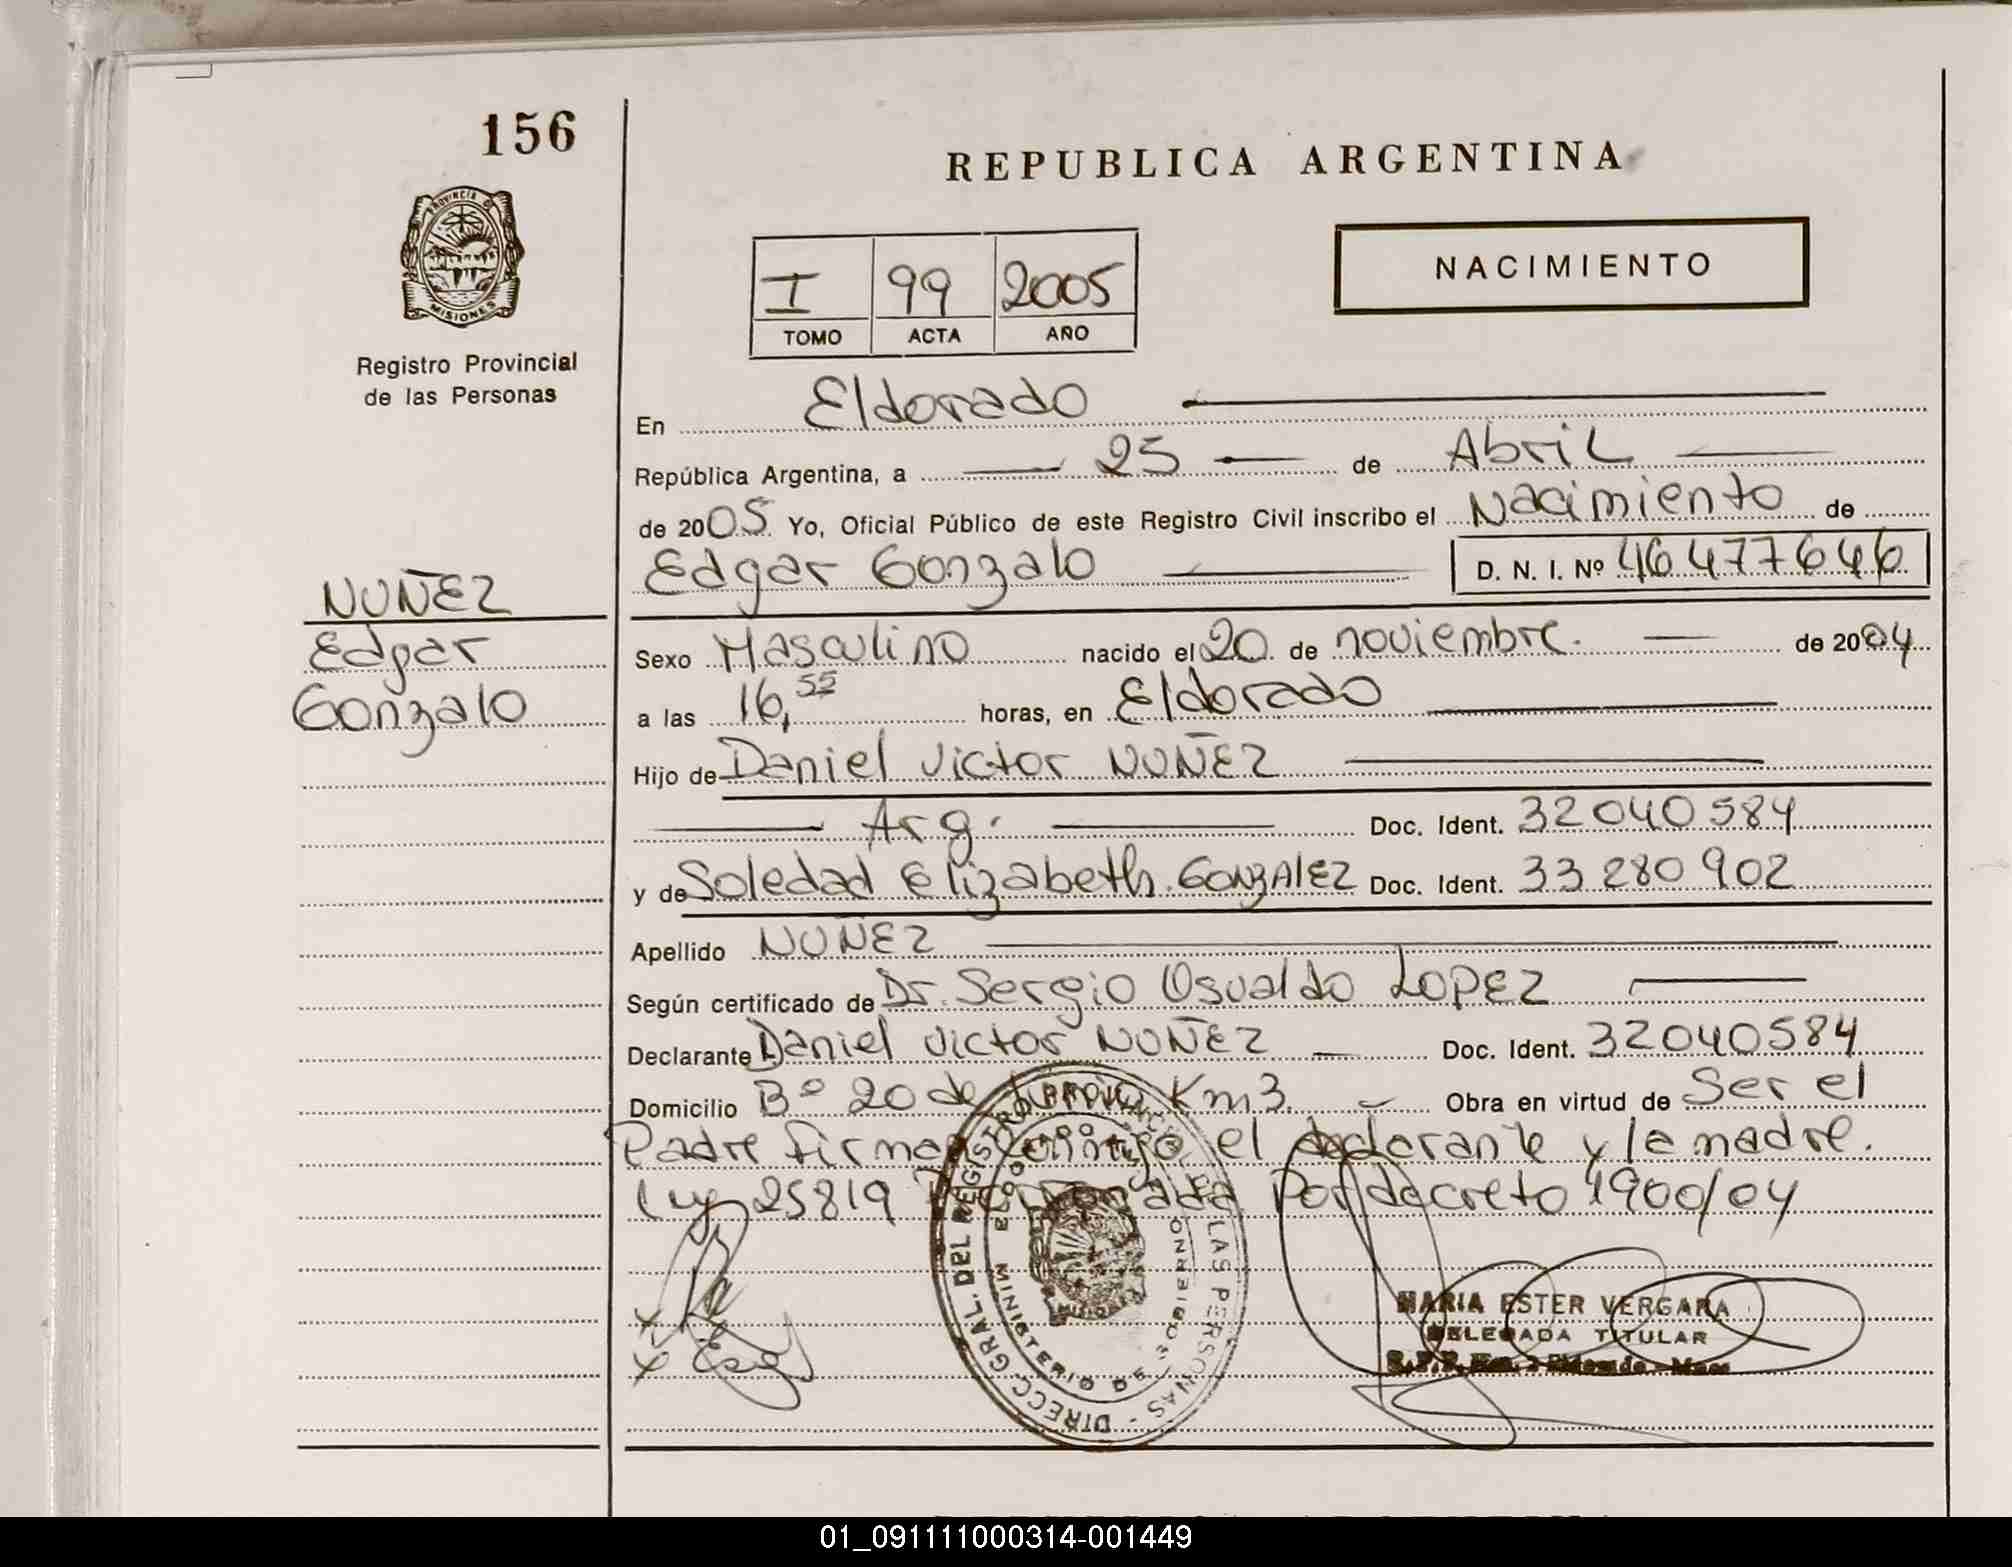 156
REPUBLICA ARGENTINA
PROVINCIA D
MISIONES
Registro Provincial
de las Personas
I 99 2005
TOMO ACTA AÑO
NACIMIENTO
En Eldorado
República Argentina, a 25 de Abril
de 2005. Yo, Oficial Público de este Registro Civil inscribo el Nacimiento de
Edgar Gonzalo D. N. I. Nº 46477646
NUÑEZ
Edgar
Gonzalo
Sexo Masculino nacido el 20 de noviembre. de 2004
a las 16,55 horas, en Eldorado
Hijo de Daniel Victor NUÑEZ
Arg. Doc. Ident. 32040584
y de Soledad Elizabeth GONZALEZ Doc. Ident. 33280902
Apellido NUÑEZ
Según certificado de Dr. Sergio Osvaldo LOPEZ
Declarante Daniel Victor NUÑEZ Doc. Ident. 32040584
Domicilio Bº 20 de Km3. Obra en virtud de Ser el
Padre firma conmigo el y la madre.
Ley 25819 Por decreto 1900/04
DIRECC. GRAL. DEL REGISTRO PROVINCIAL DE LAS PERSONAS
MINISTERIO DE GOBIERNO
MISIONES
MARIA ESTER VERGARA
DELEGADA TITULAR
01_091111000314-001449